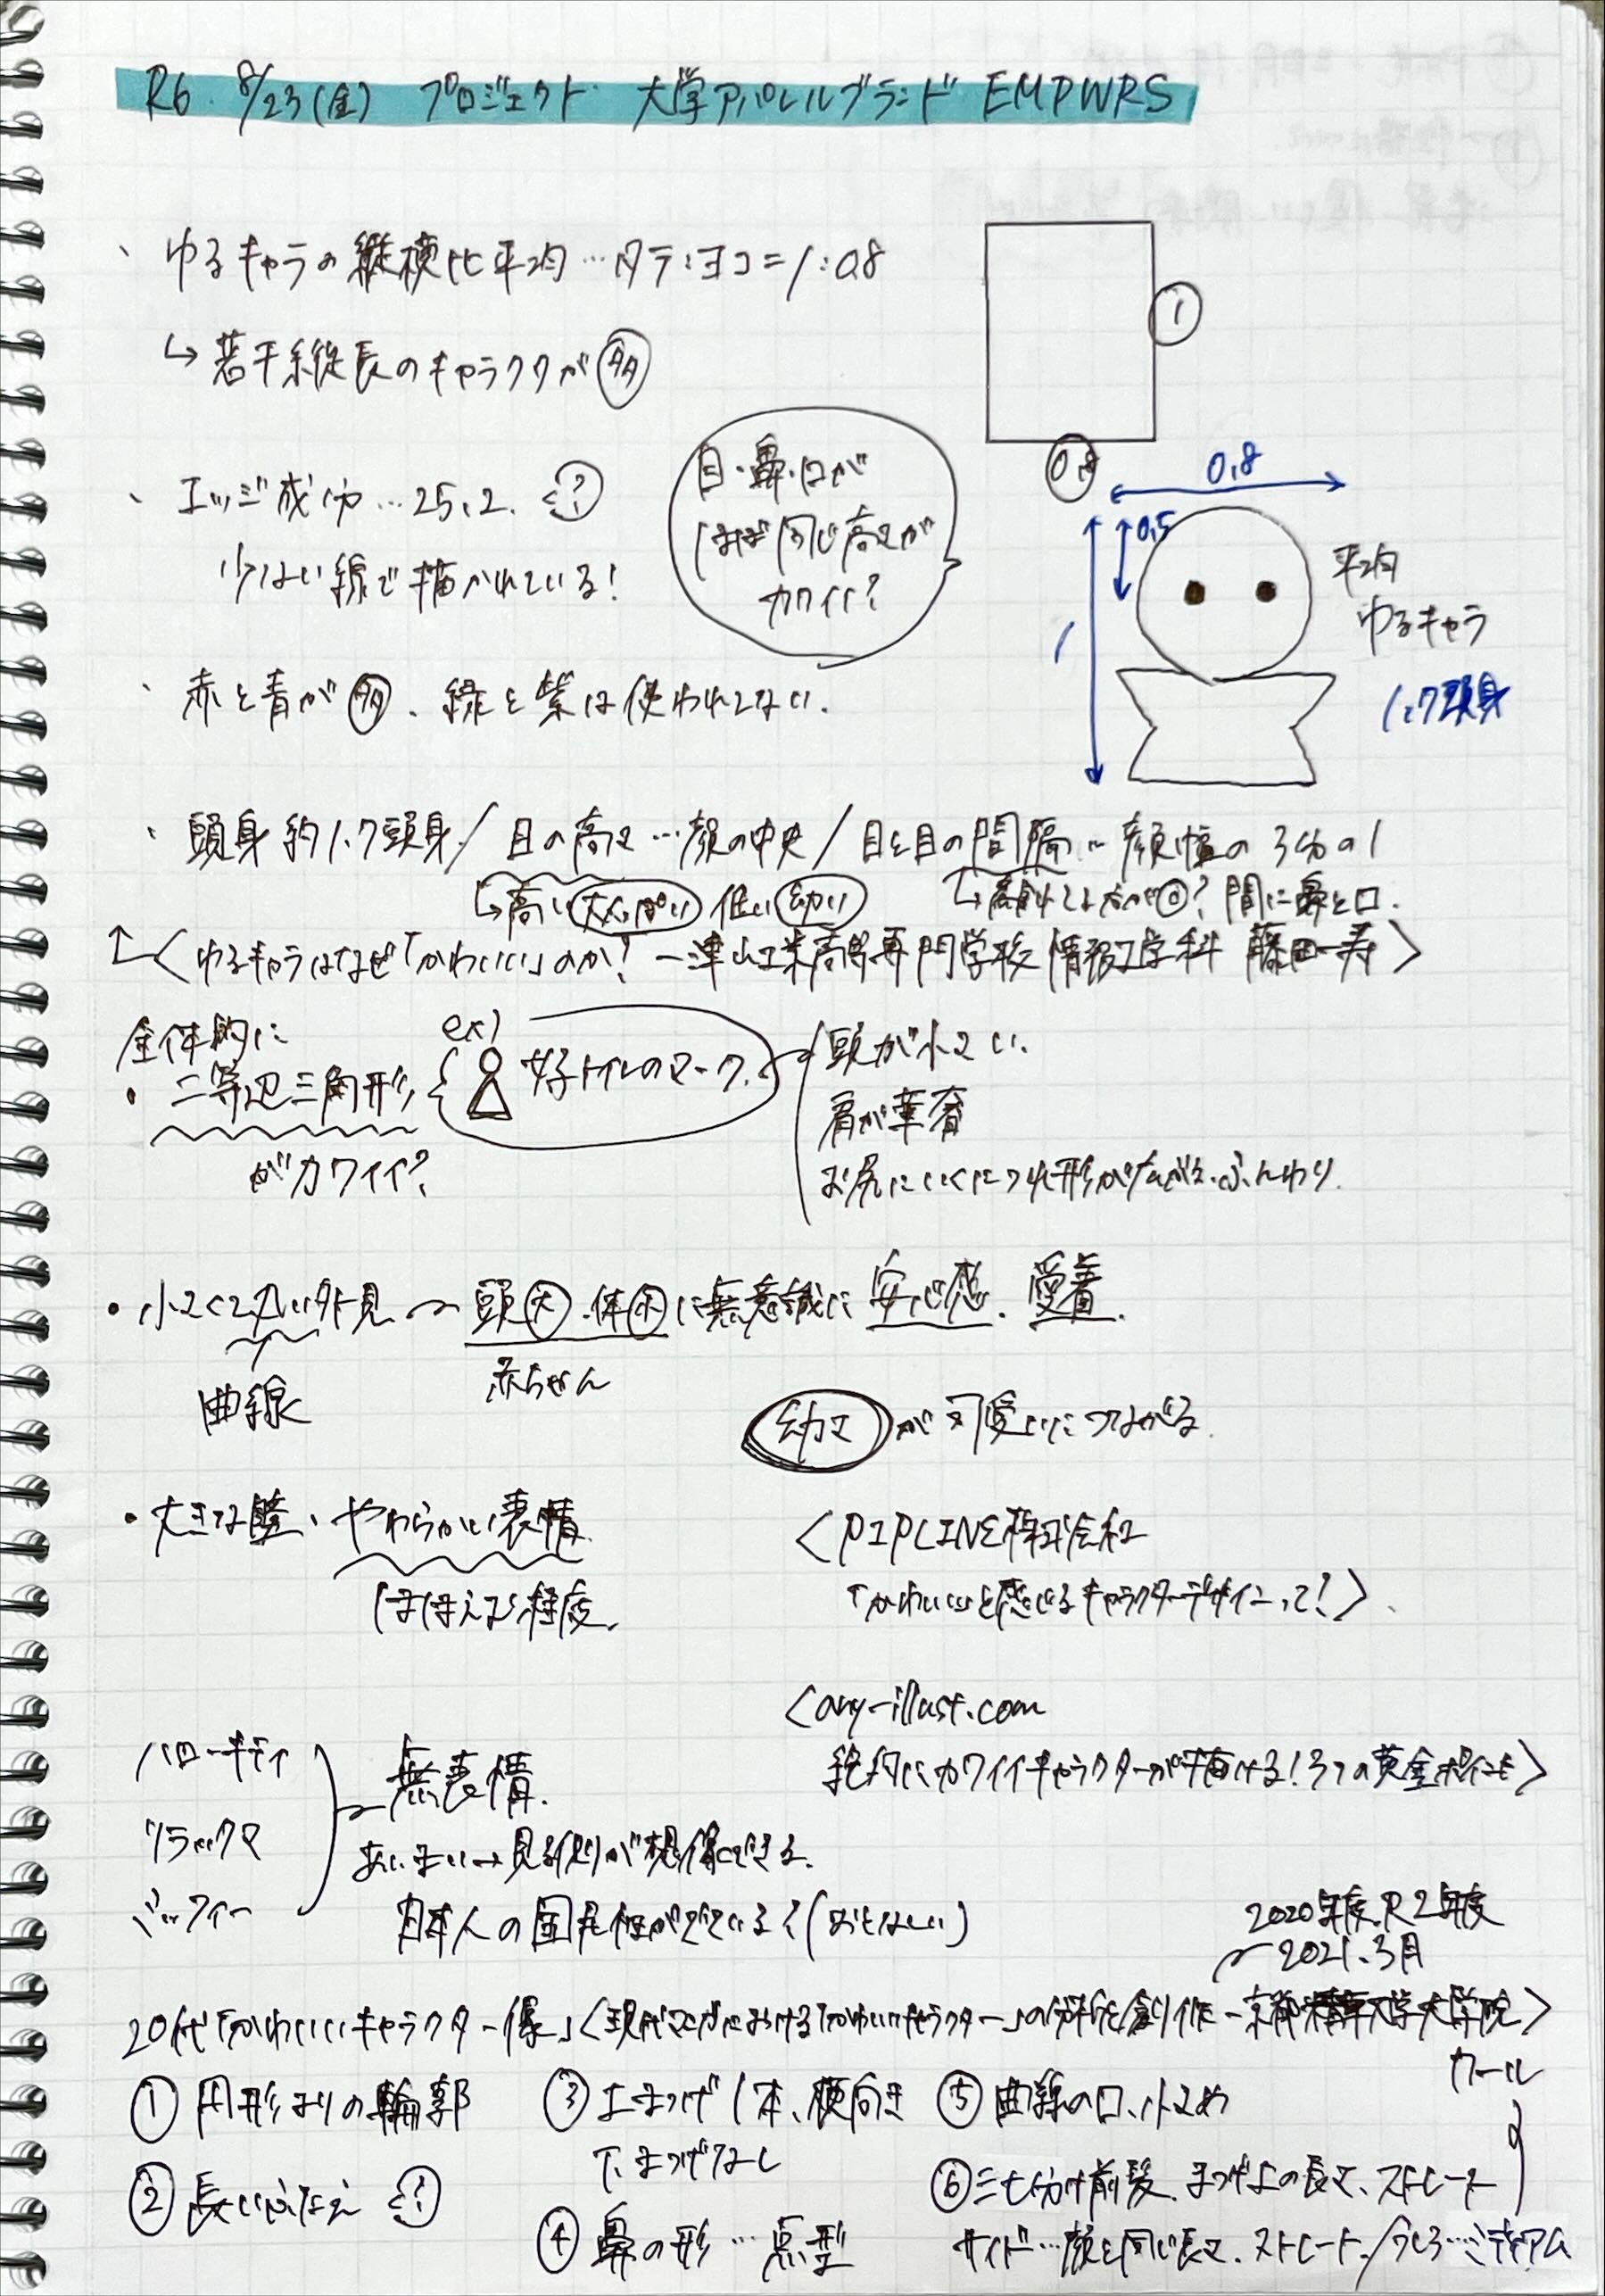 R6. 8/23(金) プロジェクト 大学アパレルブランド EMPWRS
ゆるキャラの縦横比平均…タテ:ヨコ=1:0.8
↳若干縦長のキャラクタが多
1
0.8
エッジ成分…25.2.
少ない線で描かれている!
目・鼻・口が
ほぼ同じ高さが
カワイイ?
0.8
0.5
1
平均
ゆるキャラ
1.7頭身
赤と青が多、緑と紫は使われてない.
頭身 約1.7頭身/目の高さ…顔の中央/目と目の間隔…顔幅の3分の1
↳高い大人っぽい 低い幼い
↳離れてる方が◎?間に鼻と口.
<ゆるキャラはなぜ「かわいい」のか?-津山工業高等専門学校 情報工学科 藤田一寿>
全体的に
・二等辺三角形
がカワイイ?
ex)
女子トイレのマーク.
頭が小さい.
肩が華奢
お尻にいくにつれ形が ふんわり.
・小さくて丸い外見~頭大.体小に無意識に安心感.愛着.
曲線
赤ちゃん
幼さが可愛いにつながる.
・大きな瞳、やわらかい表情.
ほほえむ程度.
<PIPLINE株式会社
「かわいいと感じるキャラクターデザインって?>
<any-illust.com
絶対にカワイイキャラクターが描ける!3つの黄金ポイント>
ハローキティ
リラックマ
ミッフィー
無表情.
あいまい→見る側が想像できる.
日本人の国民性がでている?(おとなしい)
2020年度.R2年度
2021.3月
20代「かわいいキャラクター像」<現代マンガにおける「かわいいキャラクター」の分析と創作-京都精華大学大学院>
① 円形よりの輪郭
② 長い
③ 上まつげ1本、横向き
下まつげなし
④ 鼻の形…点型
⑤ 曲線の口、小さめ
カール
⑥ 三七分け前髪.まつげ上の長さ、ストレート
サイド…顔と同じ長さ.ストレート/うしろ…ミディアム